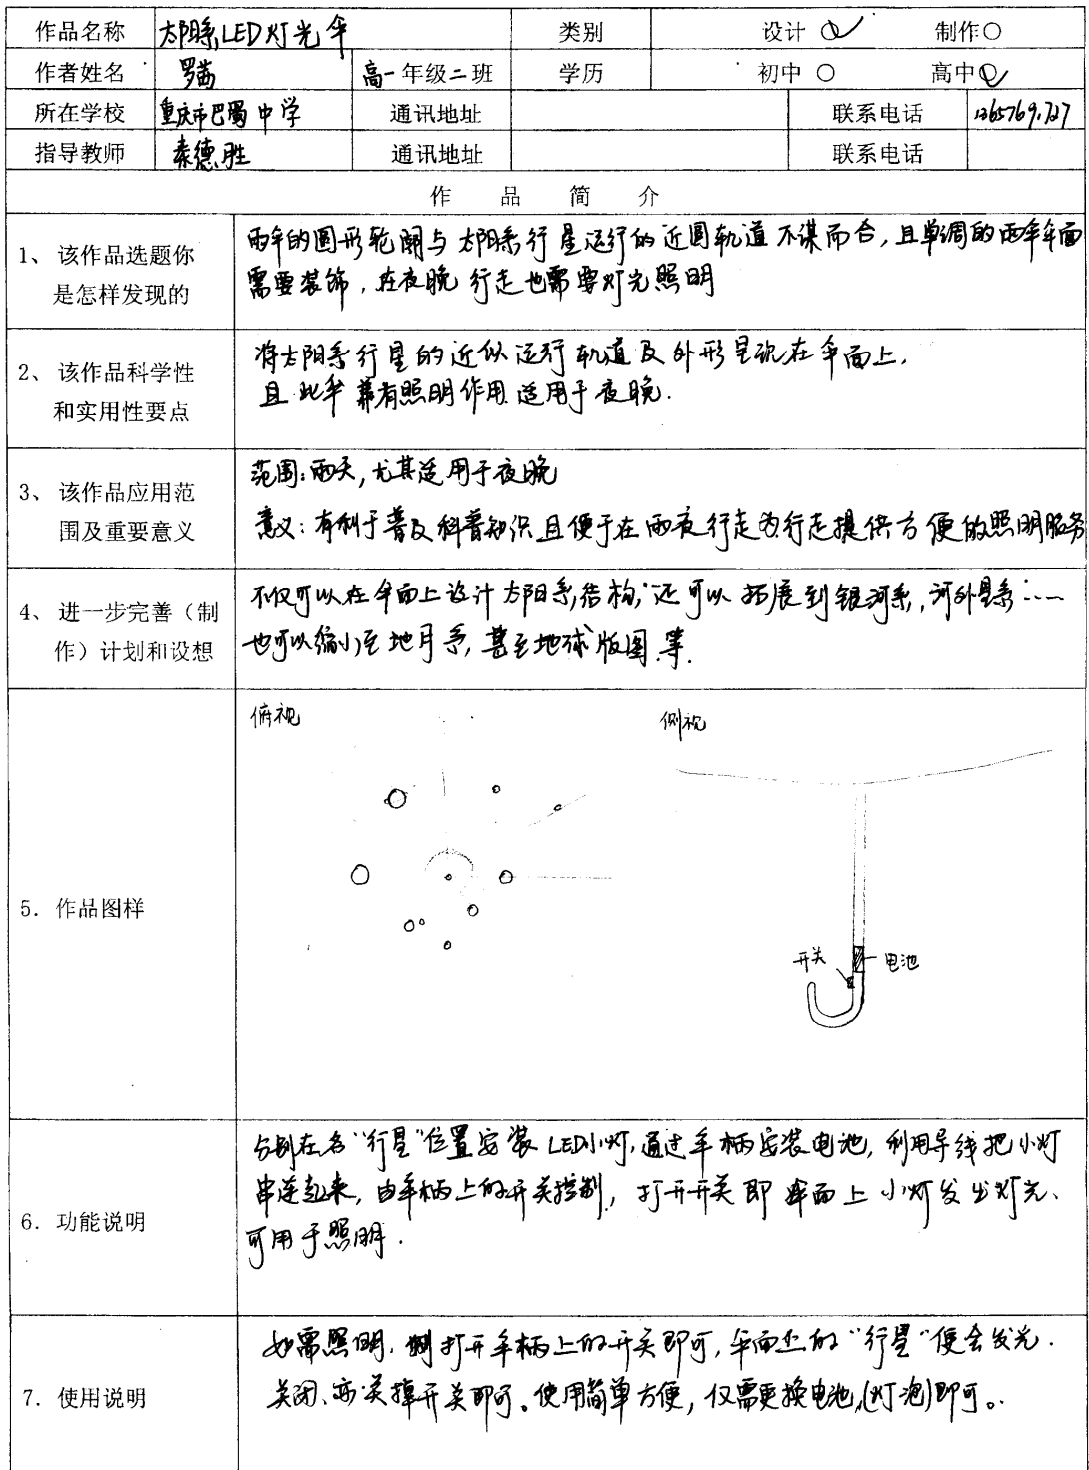 作品名称 太阳系LED灯光伞 类别 设计 制作
作者姓名 罗茜 高一年级二班 学历 初中 高中
所在学校 重庆市巴蜀中学 通讯地址 联系电话
指导教师 德胜 通讯地址 联系电话
作品简介
1、该作品选题你是怎样发现的
雨伞的圆形轮廓与太阳系行星运行的近圆轨道不谋而合,且单调的雨伞伞面
需要装饰,在夜晚行走也需要灯光照明
2、该作品科学性和实用性要点
将太阳系行星的近似运行轨道及外形呈现在伞面上,
且此伞兼有照明作用.适用于夜晚.
3、该作品应用范围及重要意义
范围:雨天,尤其适用于夜晚
意义:有利于普及科普知识且便于在雨夜行走为行走提供方便的照明服务
4、进一步完善(制作)计划和设想
不仅可以在伞面上设计太阳系结构,还可以拓展到银河系,河外星系……
也可以缩小至地月系,甚至地球版图等.
5.作品图样
俯视 侧视
开关 电池
6.功能说明
分别在各“行星”位置安装LED小灯,通过伞柄安装电池,利用导线把小灯
串连起来,由伞柄上的开关控制,打开开关即伞面上小灯发出灯光、
可用于照明.
7.使用说明
如需照明,打开伞柄上的开关即可,伞面上的“行星”便会发光.
关闭、亦关掉开关即可。使用简单方便,仅需更换电池,(灯泡)即可。